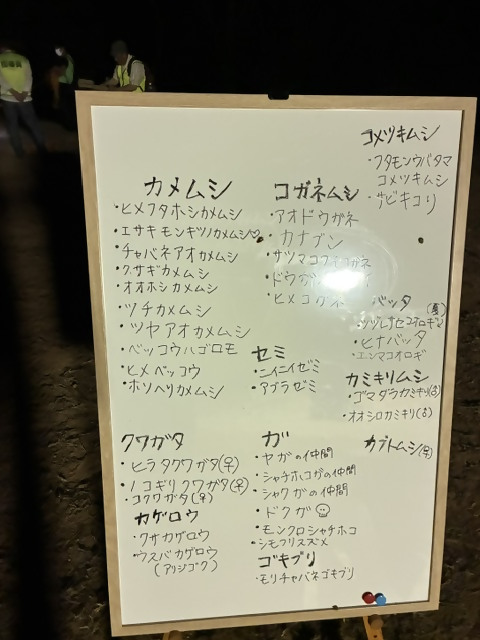 コメツキムシ
・フタモンウバタマ
コメツキムシ
・サビキコリ
カメムシ
・ヒメフタホシカメムシ
・エサキモンギツノカメムシ♡
・チャバネアオカメムシ
・クサギカメムシ
・オオホシカメムシ
・ツチカメムシ
・ツヤアオカメムシ
・ベッコウハゴロモ
・ヒメベッコウ
・ホソヘリカメムシ
コガネムシ
・アオドウガネ
・カナブン
・サツマコフキコガネ
・ヒメコガネ
セミ
・ニイニイゼミ
・アブラゼミ
バッタ
・ツヅレサセコオロギ
・ヒナバッタ
・エンマコオロギ
カミキリムシ
・ゴマダラカミキリ(♂)
・オオシロカミキリ(♂)
カブトムシ(♀)
クワガタ
・ヒラタクワガタ(♀)
・ノコギリクワガタ(♀)
・コクワガタ(♀)
カゲロウ
・クサカゲロウ
・ウスバカゲロウ
(アリジゴク)
ガ
・ヤガの仲間
・シャチホコガの仲間
・シャクガの仲間
・ドクガ☠
・モンクロシャチホコ
・シモフリスズメ
ゴキブリ
・モリチャバネゴキブリ